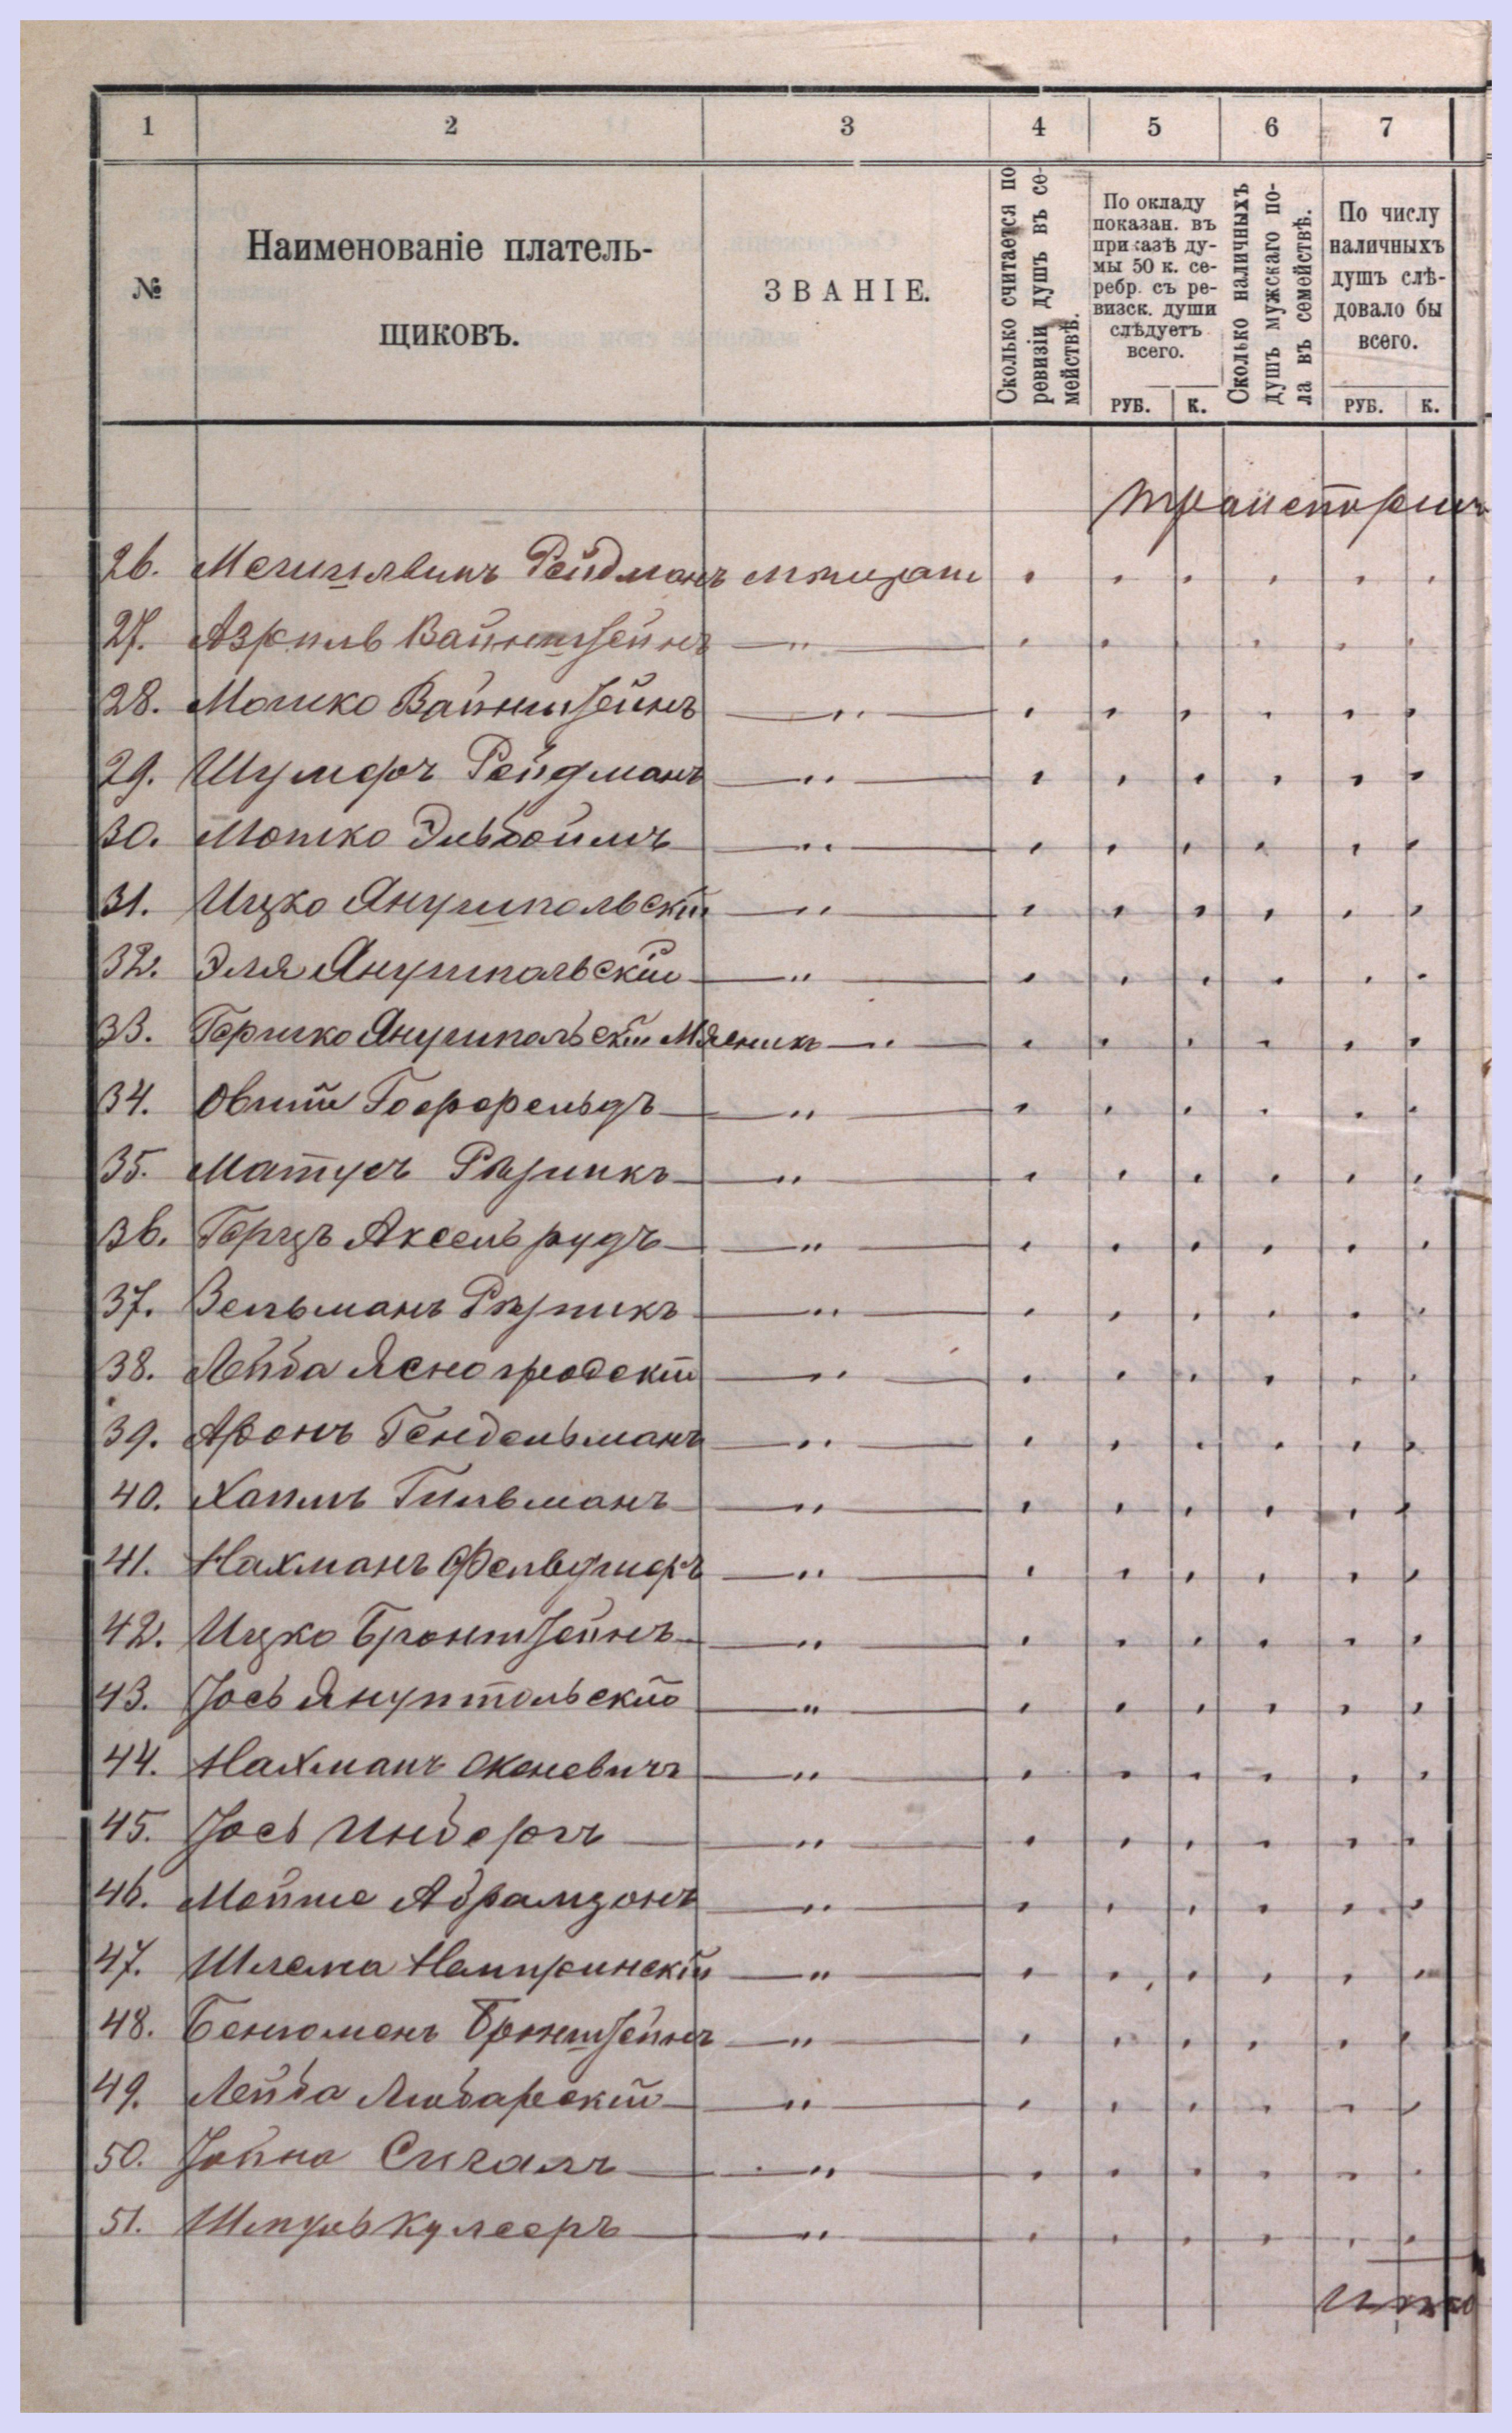 1 2 3 4 5 6 7
№
Наименованіе платель-
щиковъ.
ЗВАНІЕ.
Сколько считается по
ревизіи душъ въ се-
мействѣ.
По окладу
показан. въ
приказѣ ду-
мы 50 к. се-
ребр. съ ре-
визск. души
слѣдуетъ
всего.
РУБ. К.
Сколько наличныхъ
душъ мужскаго по-
ла въ семействѣ.
По числу
наличныхъ
душъ слѣ-
довало бы
всего.
РУБ. К.
26. Рейдманъ
27. Азриль Вайнштейнъ "
28. Мошко Вайнштейнъ "
29. Рейдманъ "
30. Мошко Эльбоймъ "
31. Ицко Янушпольскій "
32. Эля Янушпольскій "
33. Гершко Янушпольскій Мясникъ "
34. Гоффельдъ "
35. Матусъ Рѣзникъ "
36. Герцъ Аксельрудъ "
37. Зельманъ Рѣзникъ "
38. Лейба Ясногродскій "
39. Аронъ Гендельманъ "
40. Хаимъ Гильманъ "
41. Нахманъ "
42. Ицко Бронштейнъ "
43. Іось Янушпольскій "
44. Нахманъ "
45. Іось "
46. Мойше Абрамзонъ "
47. Шлема Немиринскій "
48. Бенюменъ Бронштейнъ "
49. Лейба Любарскій "
50. Іойна Сигалъ "
51. Шмуль "